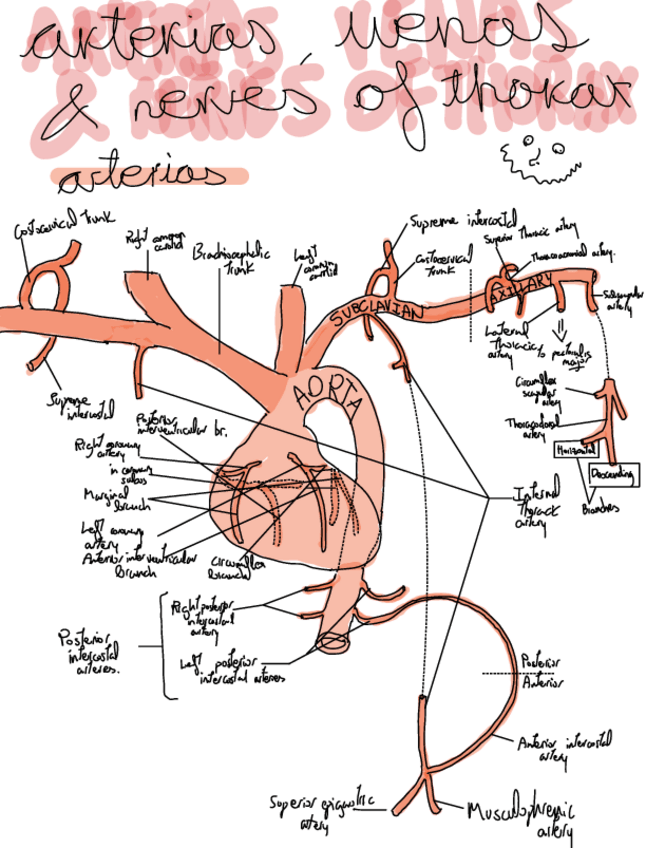 arterias, venas
& nerves of thorax
arterias
Costocervical trunk
Right common
carotid
Brachiocephalic
trunk
Left
common
carotid
Supreme intercostal
Costocervical
trunk
Superior thoracic artery
Thoracoacromial artery.
SUBCLAVIAN
AXILLARY
Subscapular
artery
Lateral
thoracic
artery
pectoralis
major
Circumflex
scapular
artery
Thoracodorsal
artery
Horizontal
Descending
Branches
Supreme
intercostal
AORTA
Posterior
interventricular br.
Right coronary
artery
in coronary
sulcus
Marginal
branch
Left coronary
artery
Anterior interventricular
branch
Circumflex
branch
Internal
thoracic
artery
Posterior
intercostal
arteries.
Right posterior
intercostal
artery
Left posterior
intercostal arteries
Posterior
Anterior
Anterior intercostal
artery
Superior epigastric
artery
Musculophrenic
artery